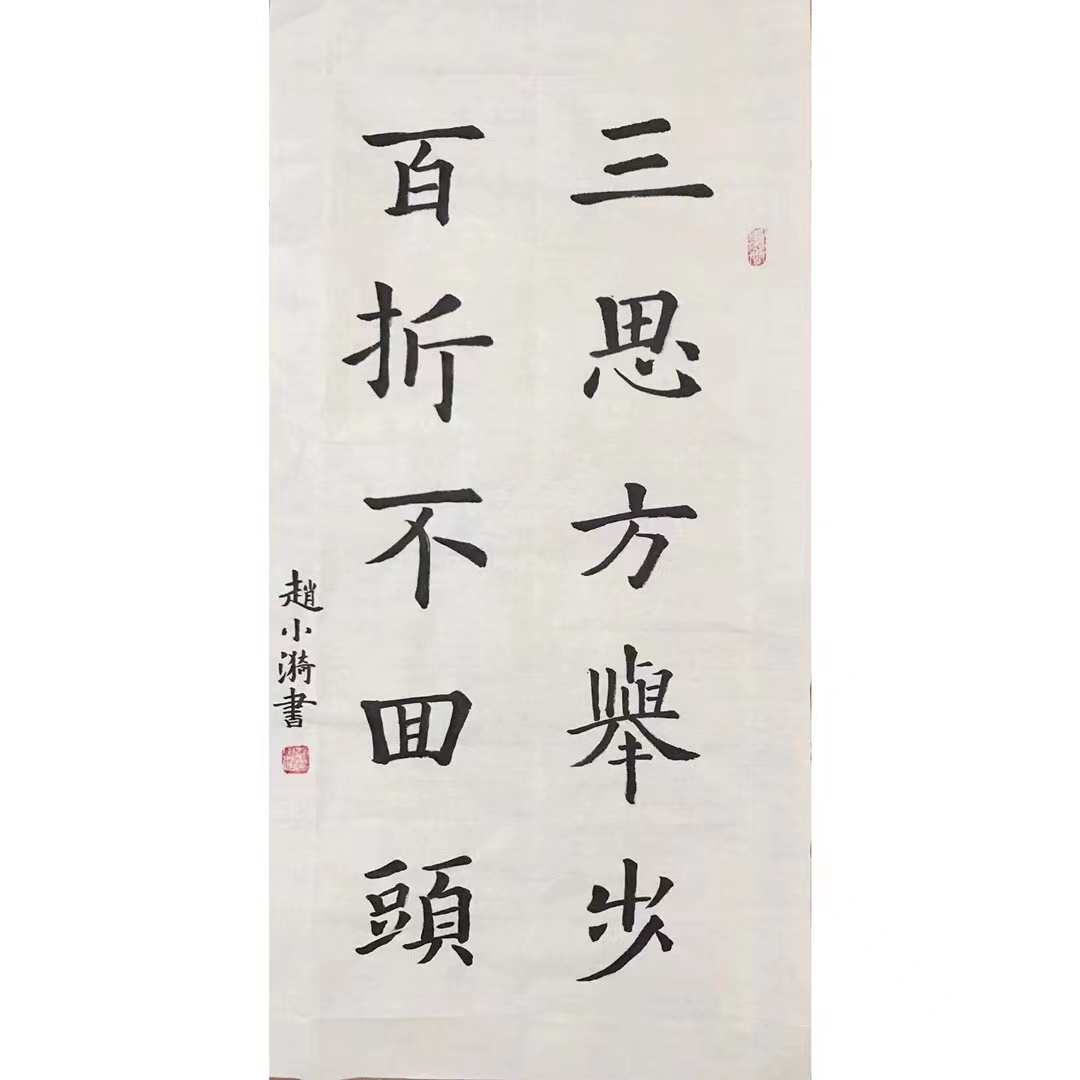 三思方舉步
百折不囬頭
趙小漪書